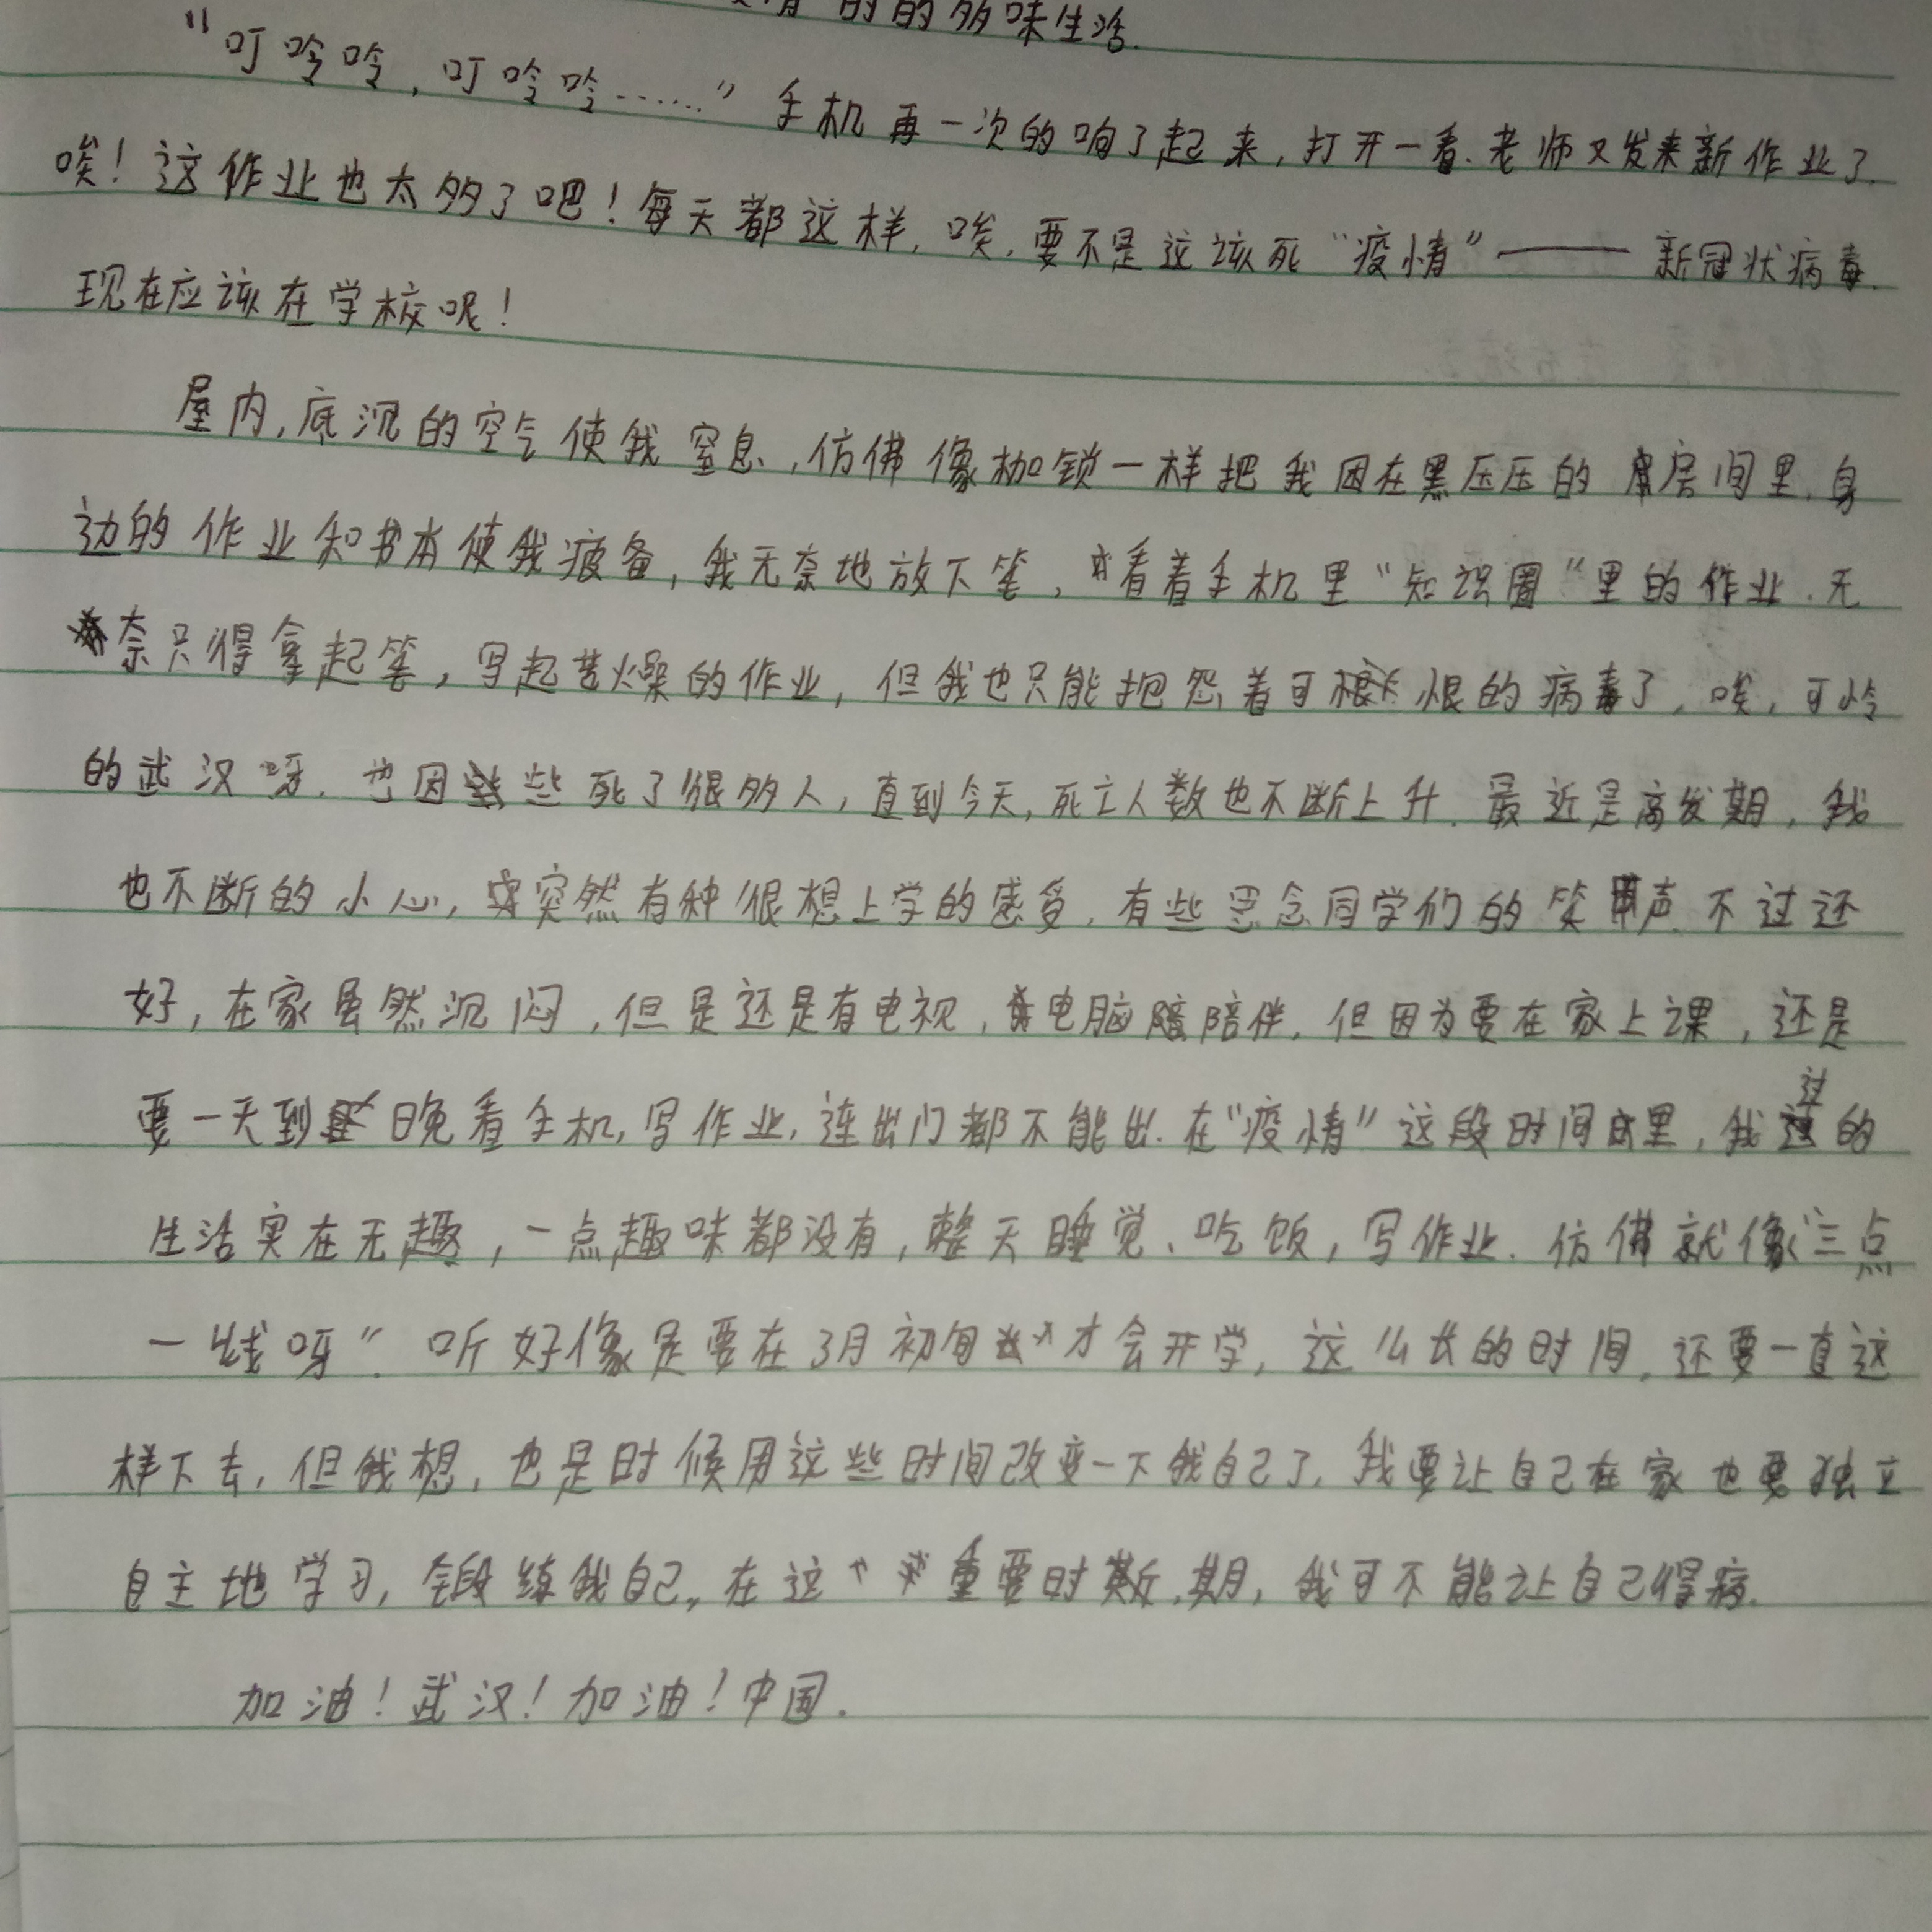 的的多味生活.
"叮呤呤,叮呤呤……"手机再一次的响了起来,打开一看.老师又发来新作业了.
唉!这作业也太多了吧!每天都这样,唉,要不是这该死"疫情"——新冠状病毒.
现在应该在学校呢!
屋内,底沉的空气使我窒息,仿佛像枷锁一样把我困在黑压压的房间里.身
边的作业和书本使我疲备,我无奈地放下笔,看着手机里"知识圈"里的作业.无
奈只得拿起笔,写起苦燥的作业,但我也只能抱怨着可恨的病毒了,唉,可怜
的武汉呀.也因些死了很多人,直到今天,死亡人数也不断上升.最近是高发期,我
也不断的小心,突然有种很想上学的感受,有些思念同学们的笑声.不过还
好,在家虽然沉闷,但是还是有电视,电脑陪伴,但因为要在家上课,还是
要一天到晚看手机,写作业,连出门都不能出.在"疫情"这段时间里,我过的
生活实在无趣,一点趣味都没有,整天睡觉、吃饭,写作业.仿佛就像"三点
一线呀".听好像是要在3月初旬才会开学,这么长的时间,还要一直这
样下去,但我想,也是时候用这些时间改变一下我自己了,我要让自己在家也要独立
自主地学习,锻练我自己,在这重要时期,我可不能让自己得病.
加油!武汉!加油!中国.